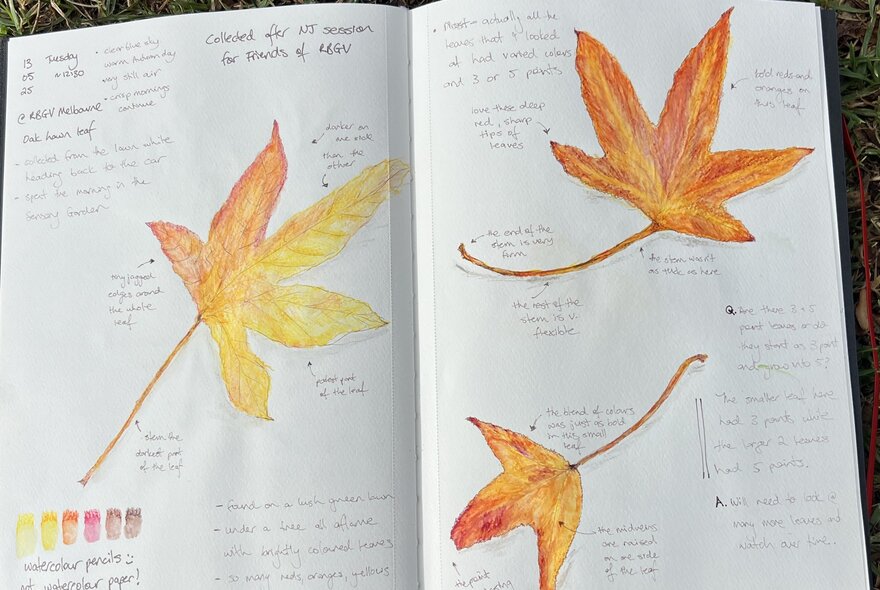 13
05
25
Tuesday
~12:30
• clear blue sky
warm Autumn day
very still air
• crisp mornings
continue
@ RBGV Melbourne
Oak Lawn leaf
- collected from the lawn while
heading back to the car
- spent the morning in the
Sensory Garden
Collected after NJ session
for Friends of RBGV
darker on
one side
than the
other
tiny jagged
edges around
the whole
leaf
palest part
of the leaf
stem the
darkest part
of the leaf
watercolour pencils
not watercolour paper!
- found on a lush green lawn
- under a tree all aflame
with brightly coloured leaves
- so many reds, oranges, yellows
• Most - actually all the
leaves that I looked
at had varied colors
and 3 or 5 points
love these deep
red, sharp
tips of
leaves
bold reds and
oranges on
this leaf
the end of the
stem is very
firm
the stem wasn't
as thick as here
the rest of the
stem is v.
flexible
Q. Are there 3 + 5
point leaves or do
they start as 3 point
and grow into 5?
the blend of colours
was just as bold
in this small
leaf
The smaller leaf here
had 3 points while
the larger 2 leaves
had 5 points.
A. Will need to look @
many more leaves and
watch over time..
the midveins
are raised
on one side
of the leaf
the point